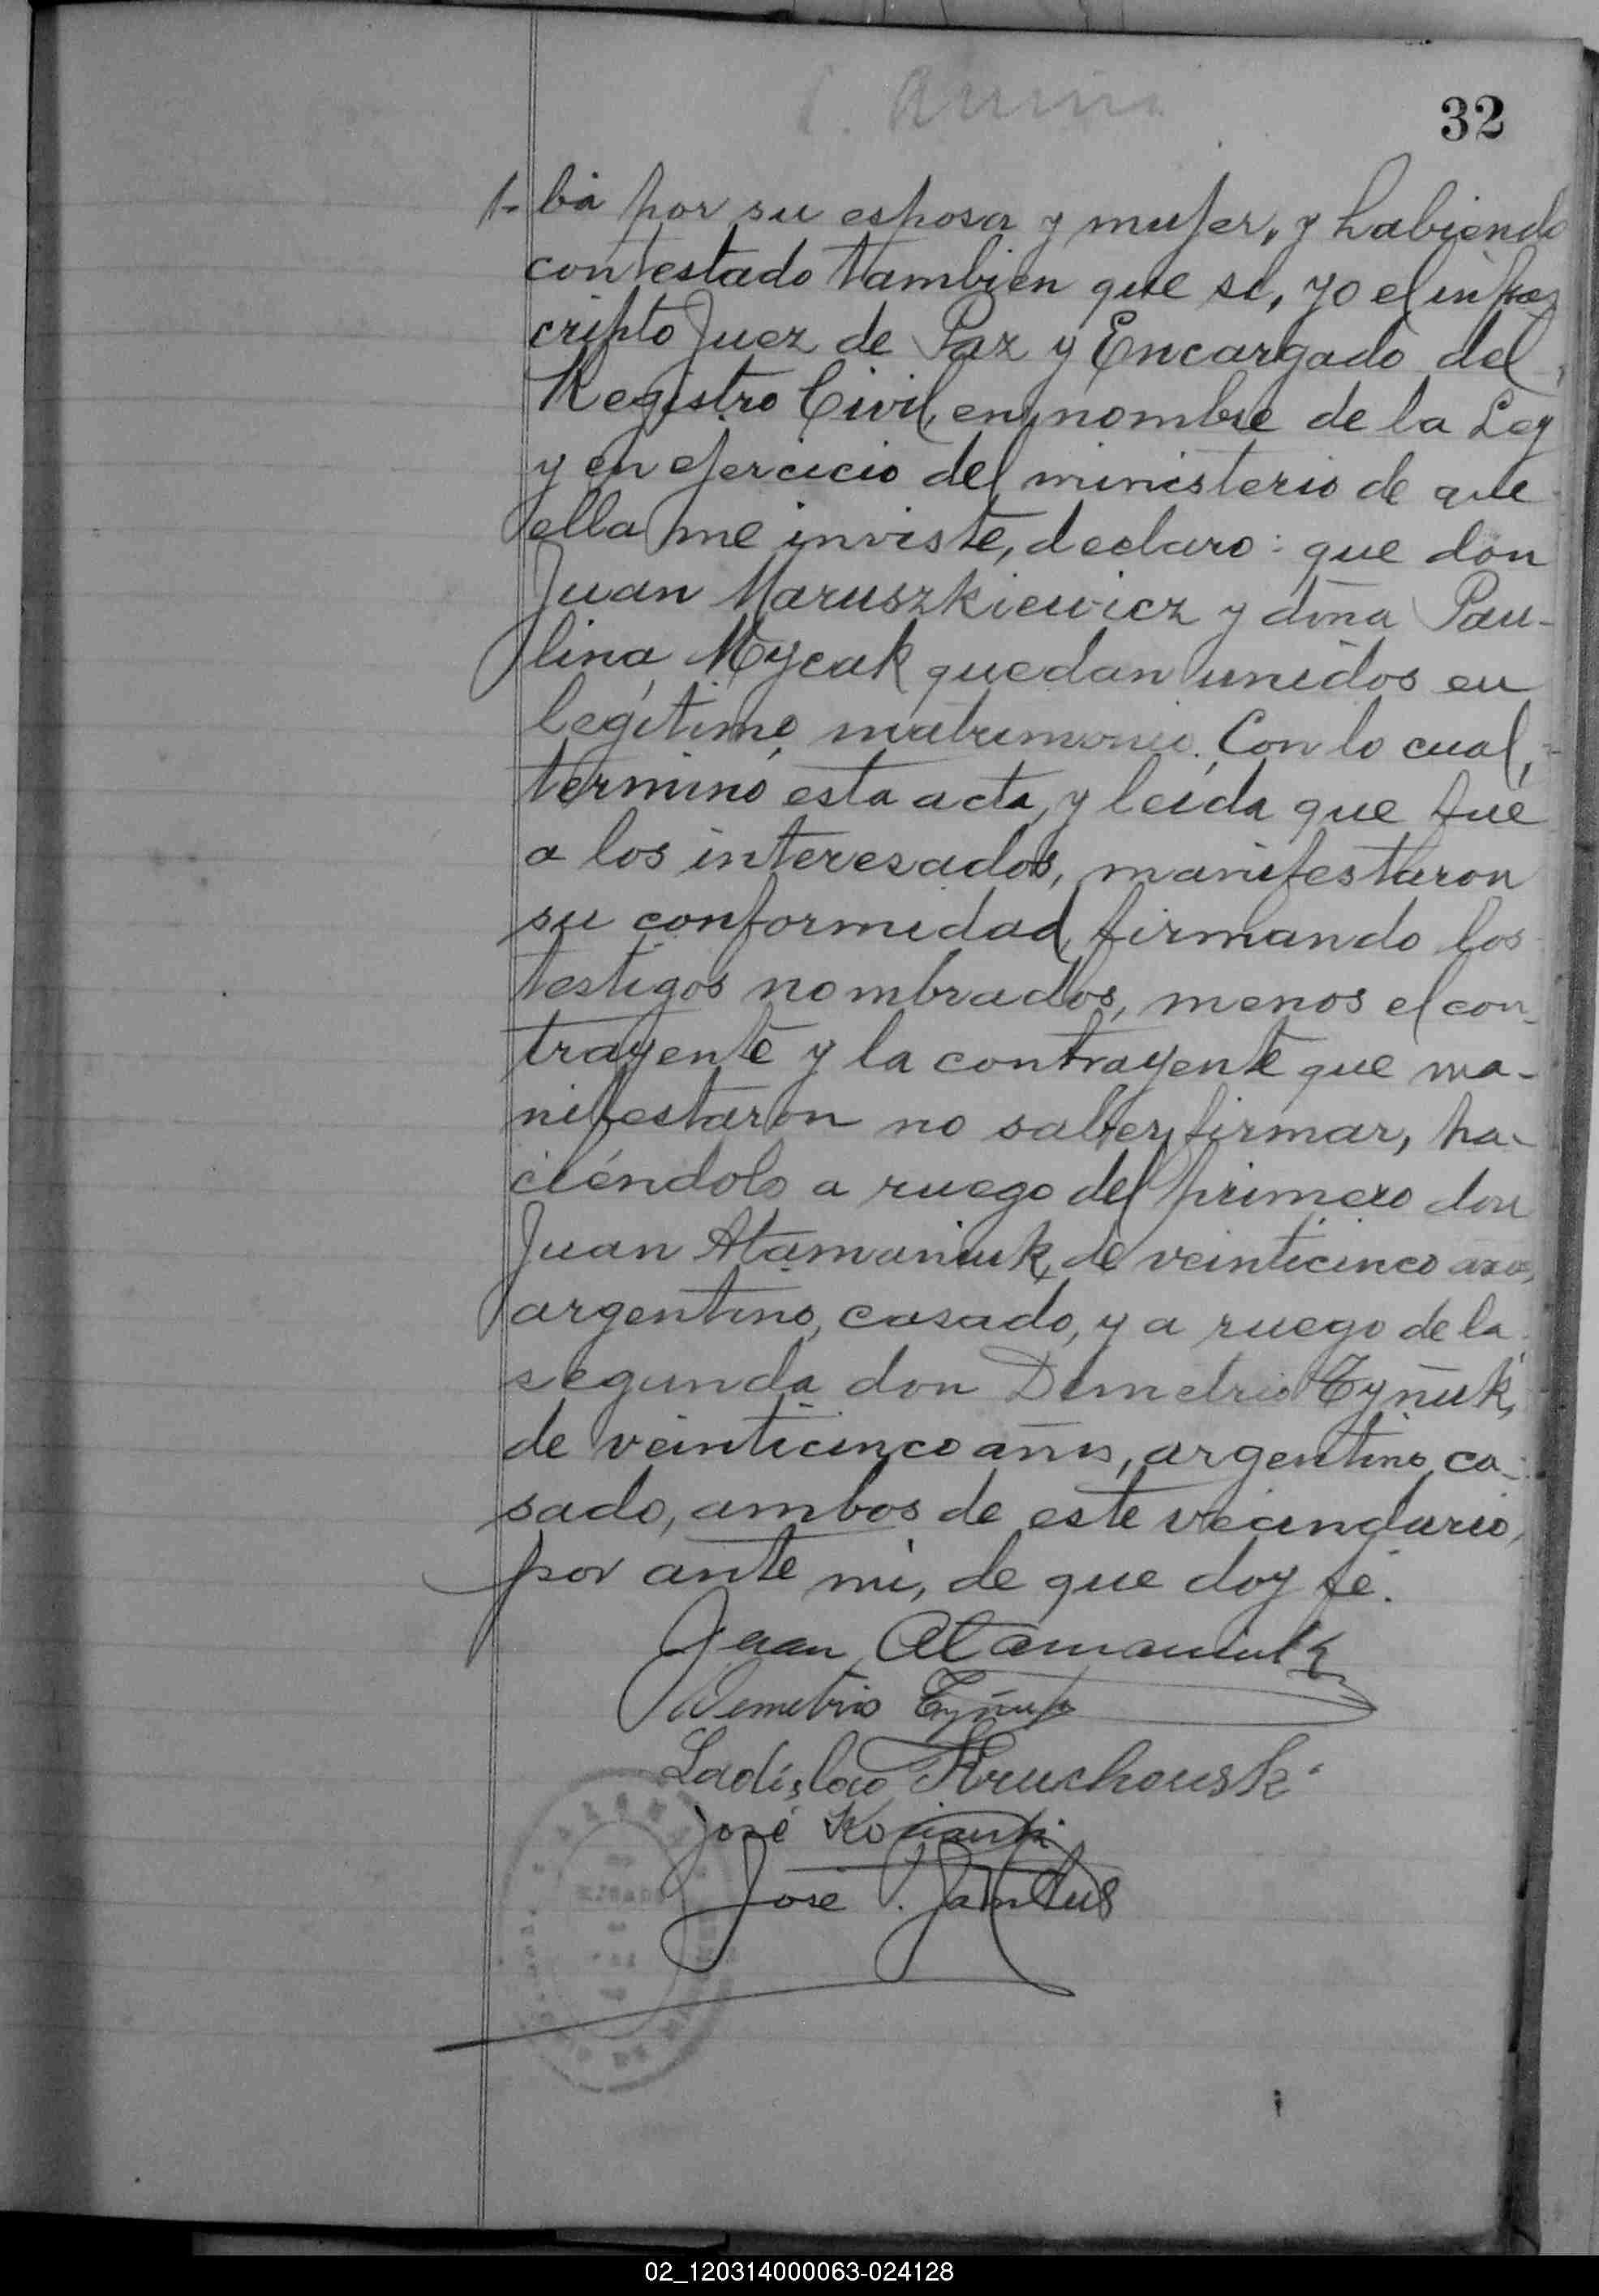 32
1- bia por su esposa y mujer, y habiendo
contestado tambien que si, yo el infras
cripto Juez de Paz y Encargado del
Registro Civil, en nombre de la Ley
y en ejercicio del ministerio de que
ella me inviste, declaro: que don
Juan Maruszkiewicz y doña Pau-
lina Mycak quedan unidos en
legítimo matrimonio. Con lo cual,
terminó esta acta, y leída que fué
a los interesados, manifestaron
su conformidad, firmando los
testigos nombrados, menos el con-
trayente y la contrayente que ma-
nifestaron no saber firmar, ha-
ciéndolo a ruego del primero don
Juan Atamaniuk, de veinticinco años,
argentino, casado, y a ruego de la
segunda don Demetrio Tyñuk,
de veinticinco años, argentino, ca-
sado, ambos de este vecindario,
por ante mi, de que doy fé.
Juan Atamaniuk
Demetrio Tyñuk
Ladislao Kruchouski
José
José P.
02_120314000063-024128